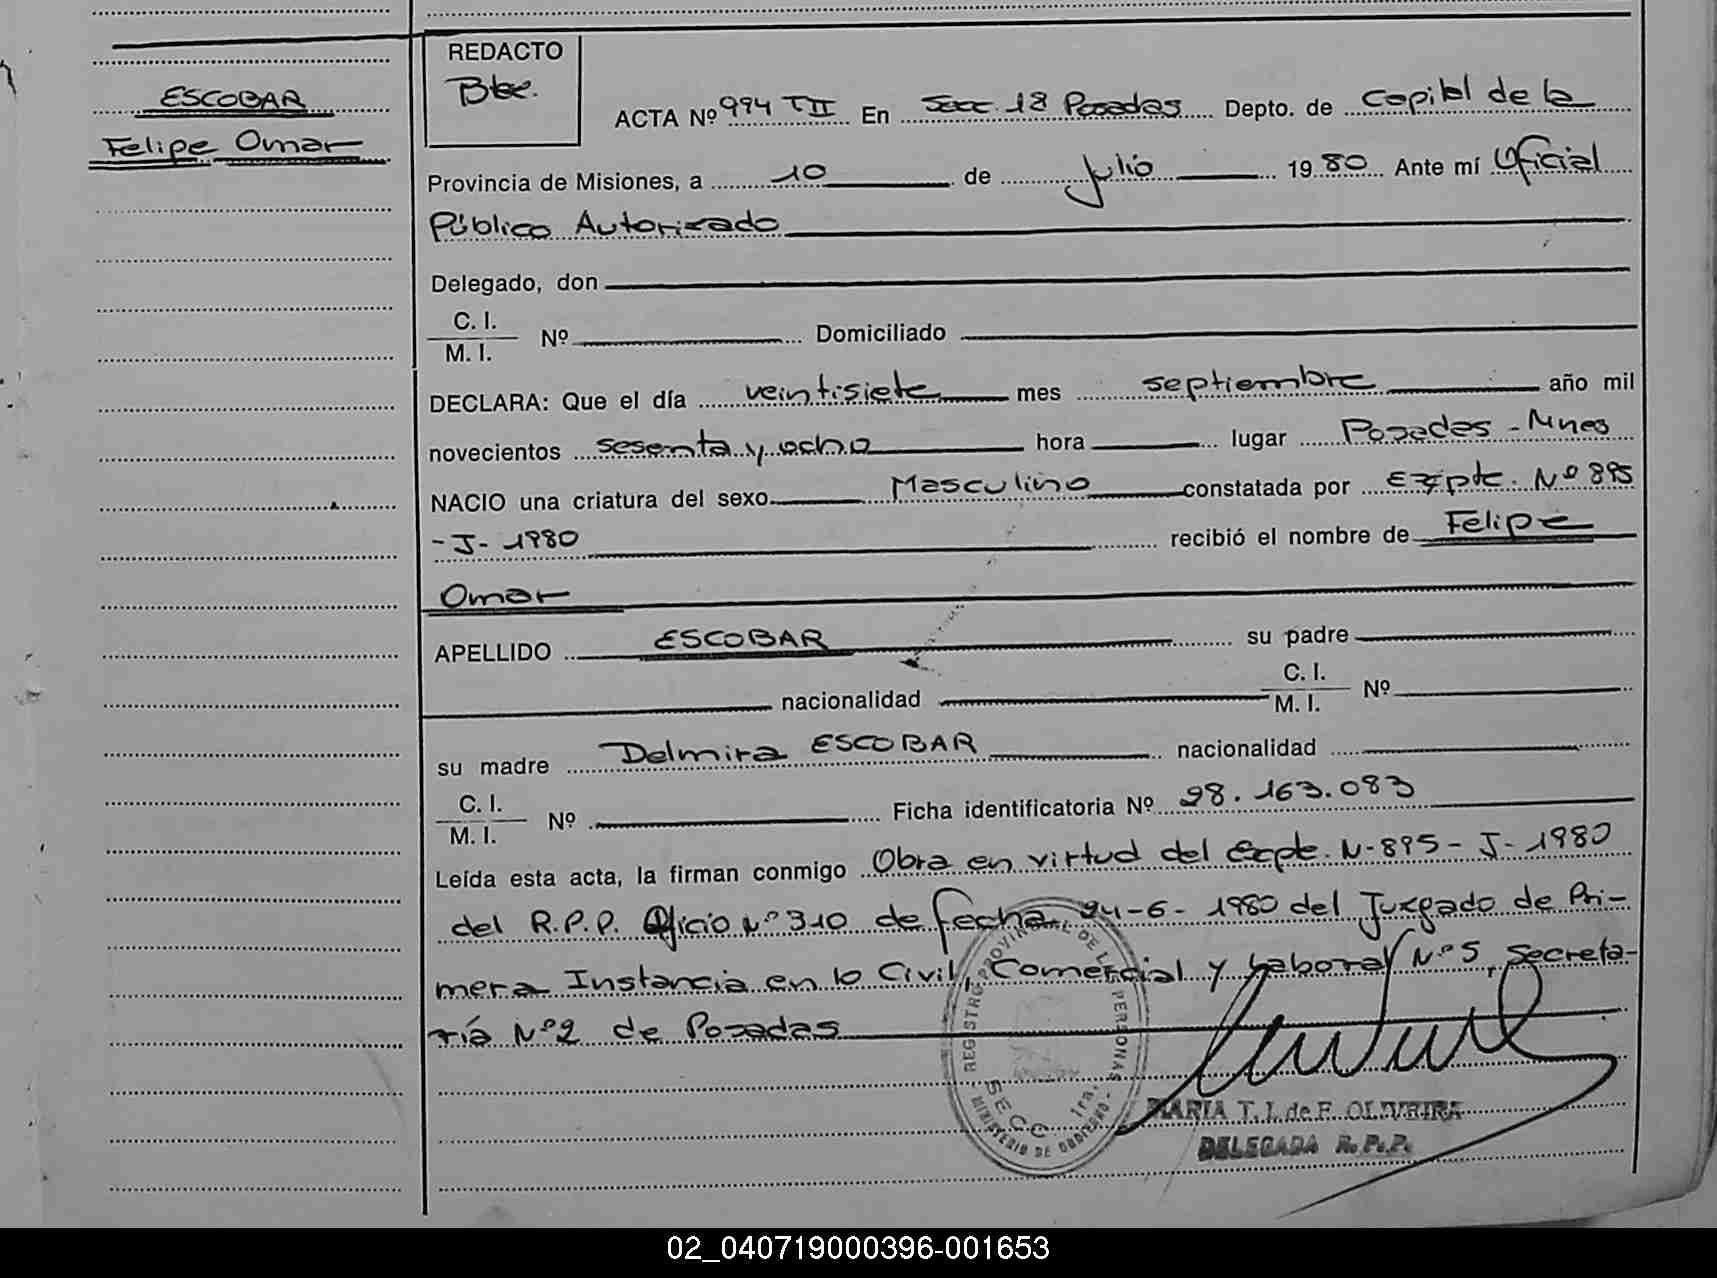 ESCOBAR
Felipe Omar
REDACTO
ACTA Nº 994 T II En Secc. 18 Posadas Depto. de Capital de la
Provincia de Misiones, a 10 de Julio 1980 Ante mí Oficial
Público Autorizado
Delegado, don
C. I.
M. I. Nº Domiciliado
DECLARA: Que el día veintisiete mes septiembre año mil
novecientos sesenta y ocho hora lugar Posadas - Mnes
NACIO una criatura del sexo Masculino constatada por Expte. Nº 895
- J - 1980 recibió el nombre de Felipe
Omar
APELLIDO ESCOBAR su padre
nacionalidad C. I.
M. I. Nº
su madre Delmira ESCOBAR nacionalidad
C. I.
M. I. Nº Ficha identificatoria Nº 28.163.083
Leída esta acta, la firman conmigo Obra en virtud del Expte. N-895-J-1980
del R.P.P. Oficio Nº 310 de fecha 24-6-1980 del Juzgado de Pri-
mera Instancia en lo Civil, Comercial y Laboral Nº 5, Secreta-
ría Nº 2 de Posadas
REGISTRO PROVINCIAL DE LAS PERSONAS
SECC. 1ra.
MINISTERIO DE GOBIERNO
MARIA T. J. de F. OLIVEIRA
DELEGADA R.P.P.
02_040719000396-001653